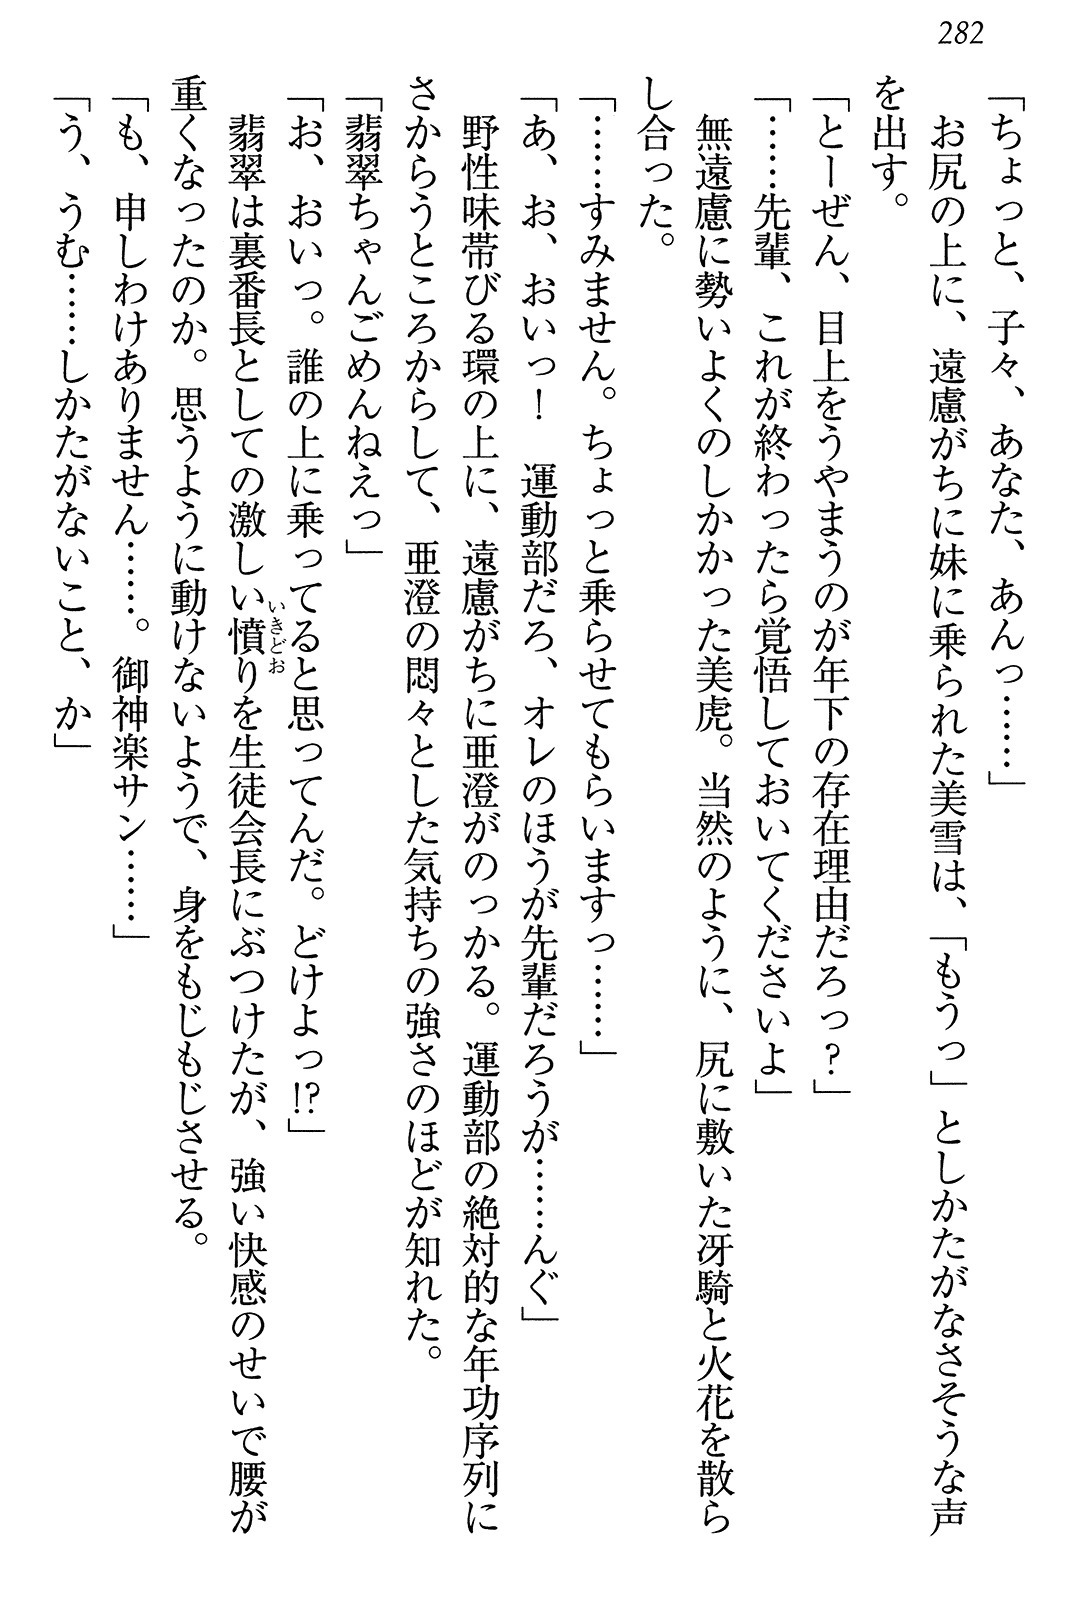 282
「ちょっと、子々、あなた、あんっ……」
お尻の上に、遠慮がちに妹に乗られた美雪は、「もうっ」としかたがなさそうな声
を出す。
「とーぜん、目上をうやまうのが年下の存在理由だろっ?」
「……先輩、これが終わったら覚悟しておいてくださいよ」
無遠慮に勢いよくのしかかった美虎。当然のように、尻に敷いた冴騎と火花を散ら
し合った。
「……すみません。ちょっと乗らせてもらいますっ……」
「あ、お、おいっ! 運動部だろ、オレのほうが先輩だろうが……んぐ」
野性味帯びる環の上に、遠慮がちに亜澄がのっかる。運動部の絶対的な年功序列に
さからうところからして、亜澄の悶々とした気持ちの強さのほどが知れた。
「翡翠ちゃんごめんねえっ」
「お、おいっ。誰の上に乗ってると思ってんだ。どけよっ!?」
翡翠は裏番長としての激しい憤りを生徒会長にぶつけたが、強い快感のせいで腰が
いきどお
重くなったのか。思うように動けないようで、身をもじもじさせる。
「も、申しわけありません……。御神楽サン……」
「う、うむ……しかたがないこと、か」